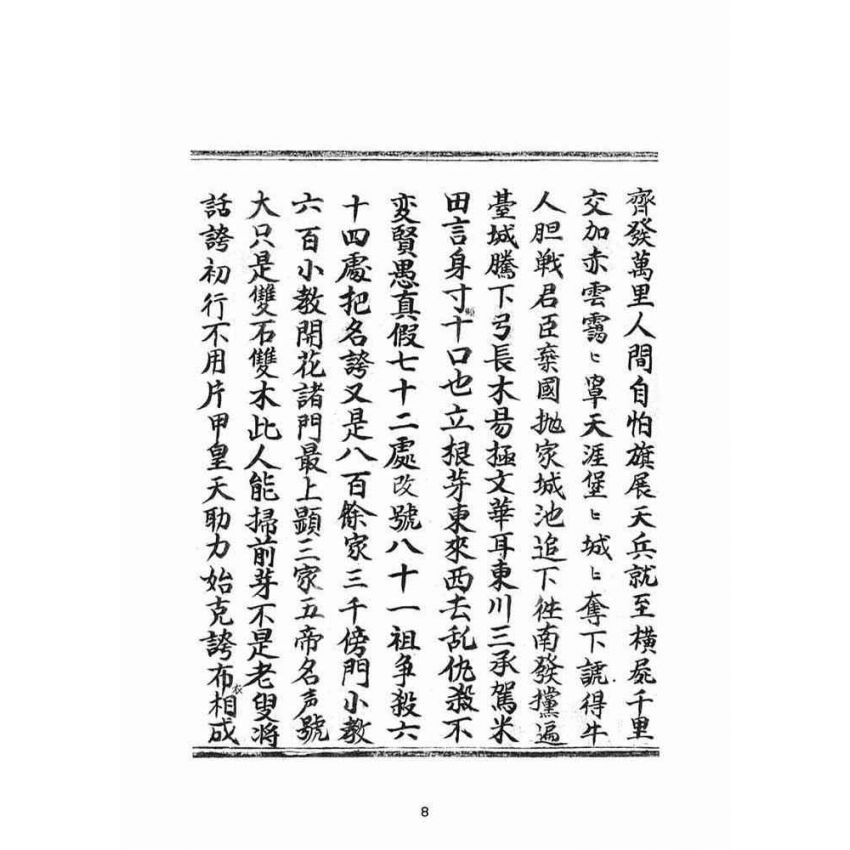 齊發萬里人間自怕旗展天兵就至橫屍千里
交加赤雲靄〻罩天涯堡〻城〻奪下諕得牛
人胆戦君臣棄國拋家城池追下徃南發攩遍
臺城騰下弓長木昜極文華耳東川三承駕米
田言身寸十口也立根芽東來西去乱仇殺不
変賢愚真假七十二處改號八十一祖争殺六
十四處把名誇又是八百餘家三千傍門小教
六百小教開花諸門最上顕三家五帝名声號
大只是雙石雙木此人能掃前芽不是老叟将
話誇初行不用片甲皇天助力始克誇布衣相成
8